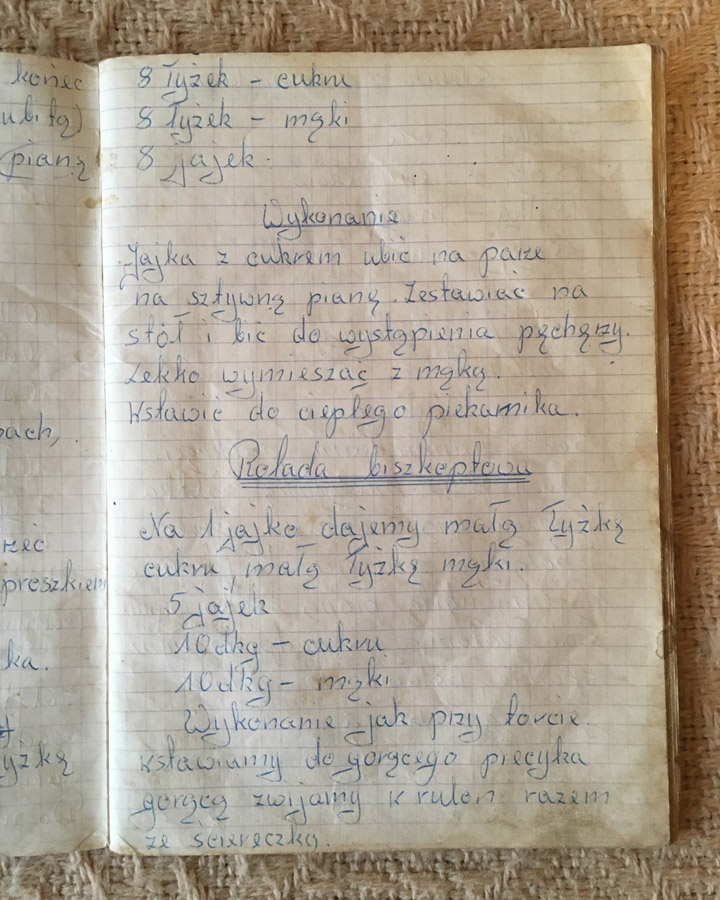 koniec
ubitą)
pianą
bach,
rzeć
preszkiem
ka.
yżką
8 łyżek - cukru
8 łyżek - mąki
8 jajek.
Wykonanie
Jajka z cukrem ubić na parze
na sztywną pianę. Zestawiać na
stół i bić do wystąpienia pęchęrzy.
Lekko wymieszać z mąką.
Wstawić do ciepłego piekarnika.
Rolada biszkoptowa
Na 1 jajko dajemy małą łyżkę
cukru, małą łyżkę mąki.
5 jajek
10 dkg - cukru
10 dkg - mąki
Wykonanie jak przy torcie.
Wstawiamy do gorącego piecyka
gorącą zwijamy w rulon razem
ze ściereczką.